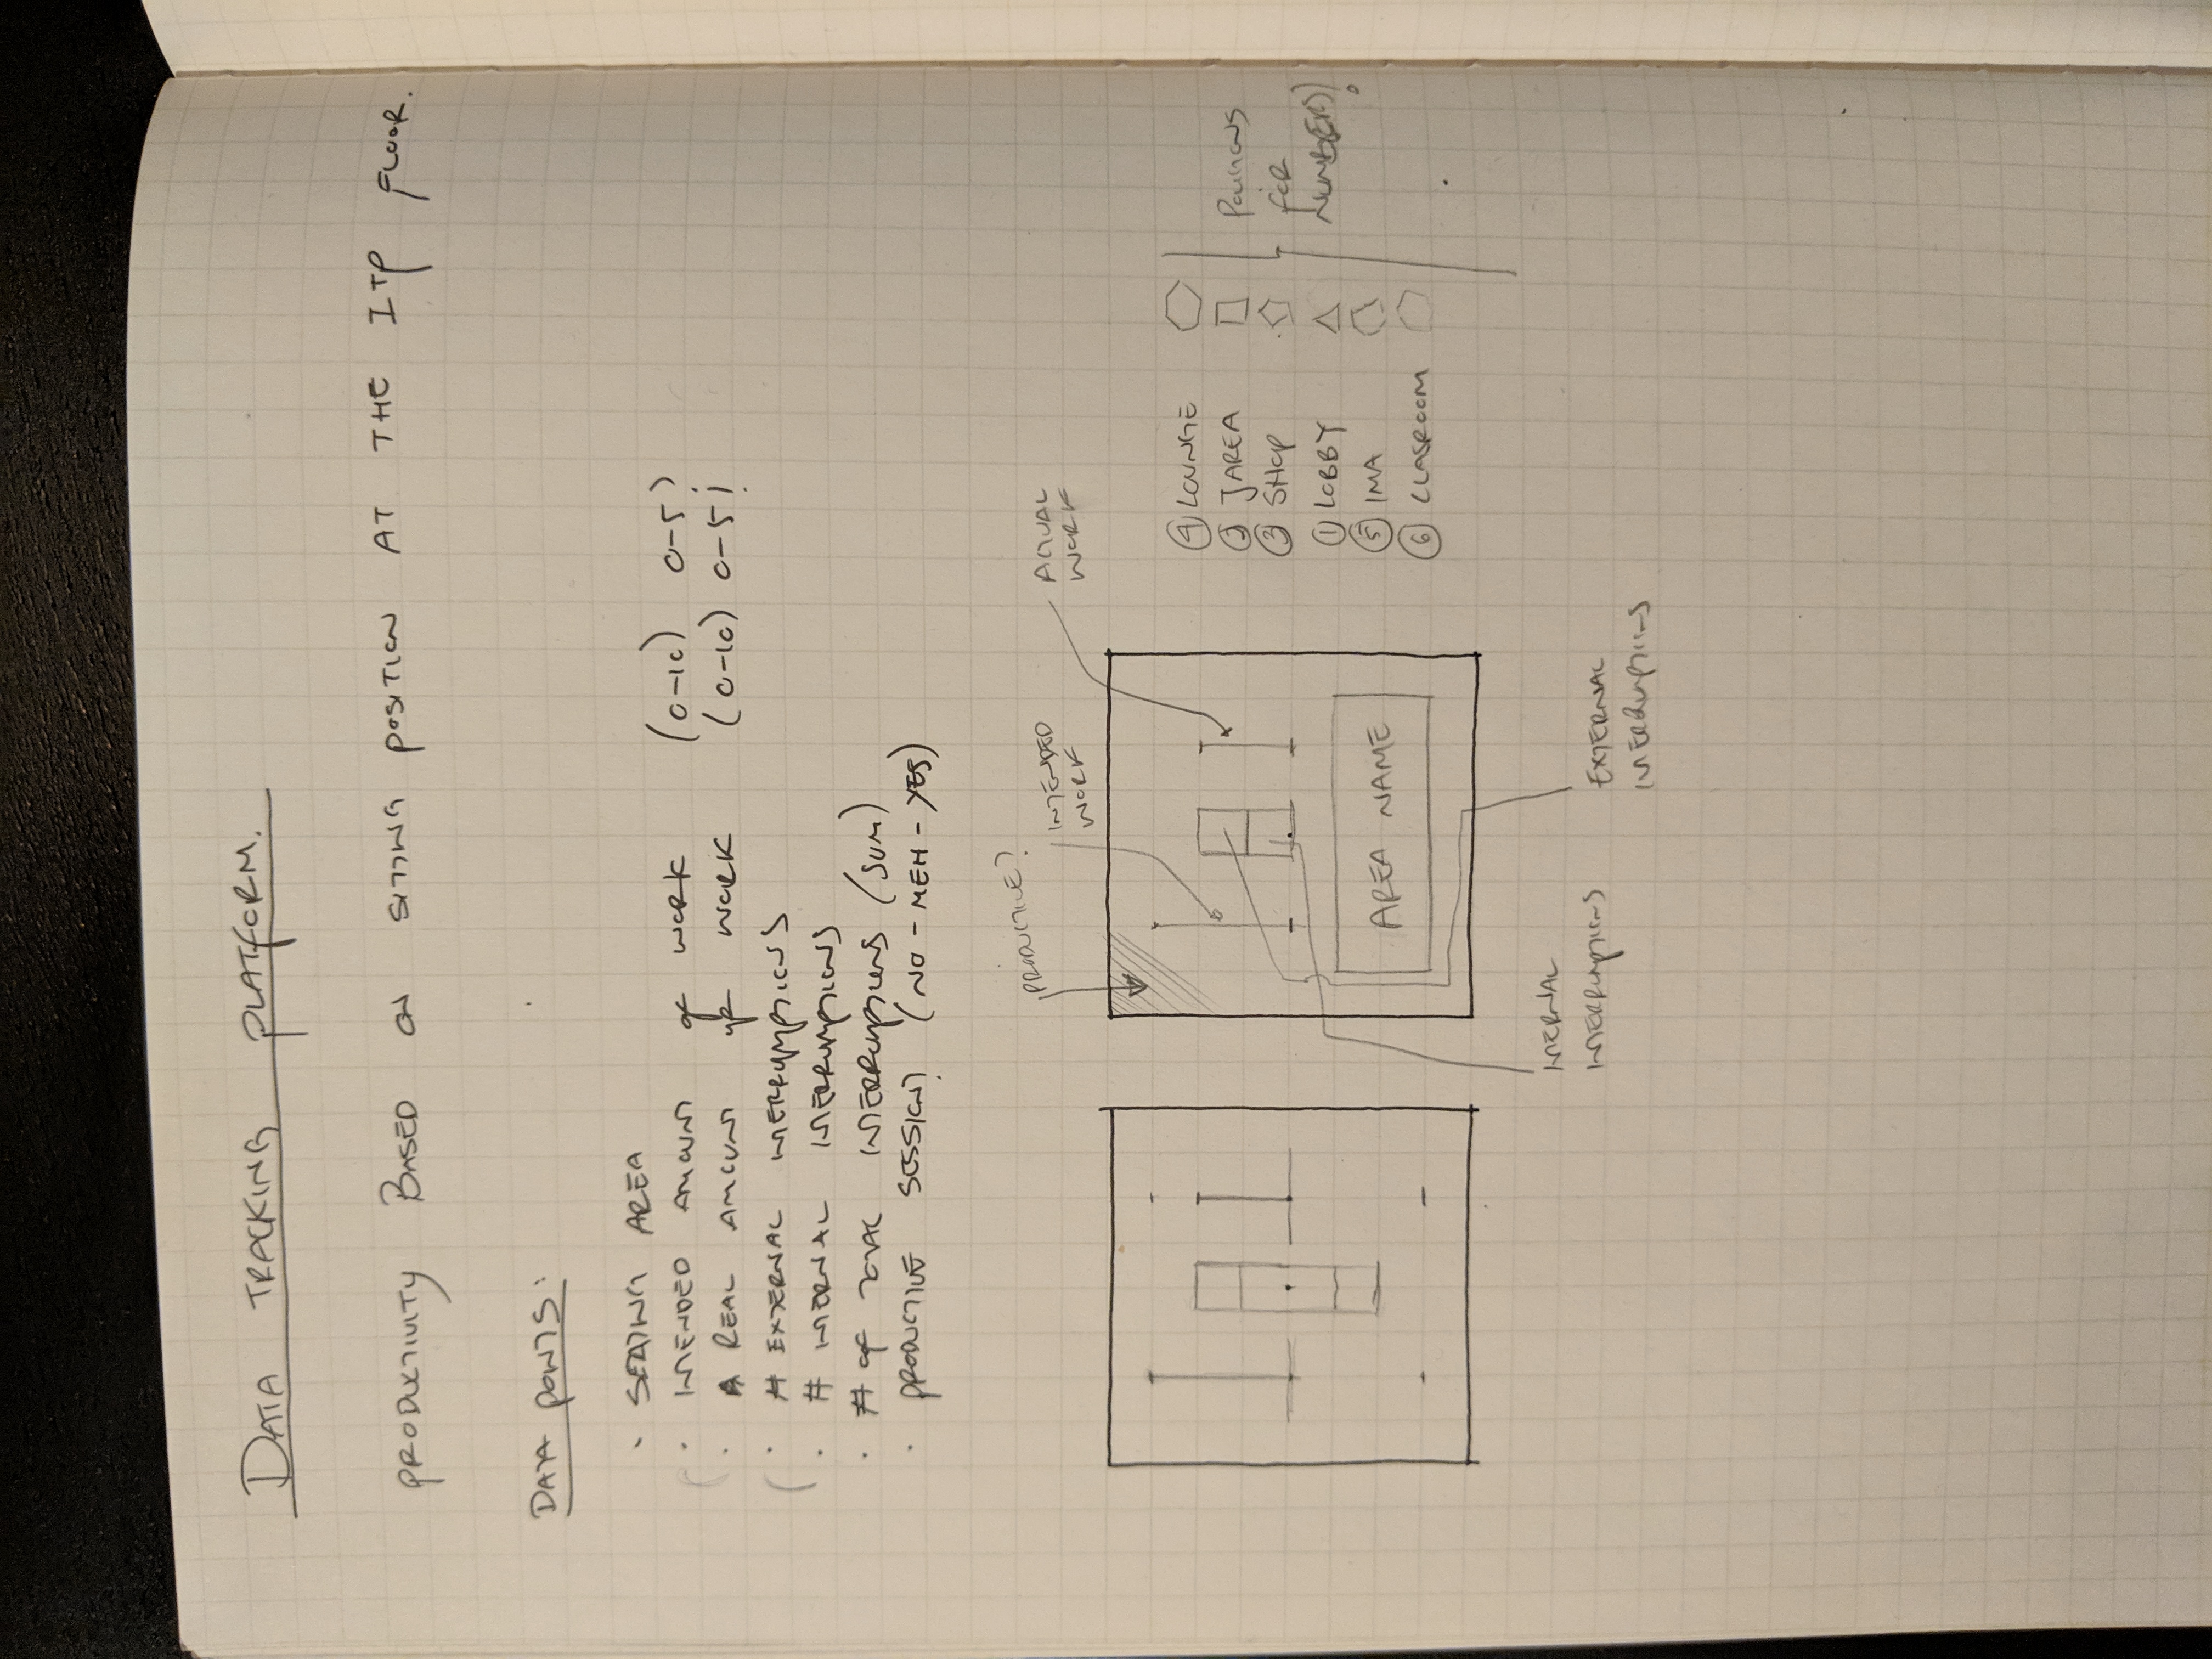 DATA TRACKING PLATFORM.
PRODUCTIVITY BASED ON SITTING POSITION AT THE ITP FLOOR.
DATA POINTS:
· SEATING AREA
· INTENDED AMOUNT OF WORK (0-10) 0-5?
· REAL AMOUNT OF WORK (0-10) 0-5?
· # EXTERNAL INTERRUPTIONS
· # INTERNAL INTERRUPTIONS
· # OF TOTAL INTERRUPTIONS (SUM)
· PRODUCTIVE SESSION? (NO - MEH - YES)
PRODUCTIVE?
INTENDED
WORK
ACTUAL
WORK
AREA NAME
INTERNAL
INTERRUPTIONS
EXTERNAL
INTERRUPTIONS
4 LOUNGE
2 JAREA
3 SHOP
1 LOBBY
5 IMA
6 CLASROOM
FOR
NUMBER)?